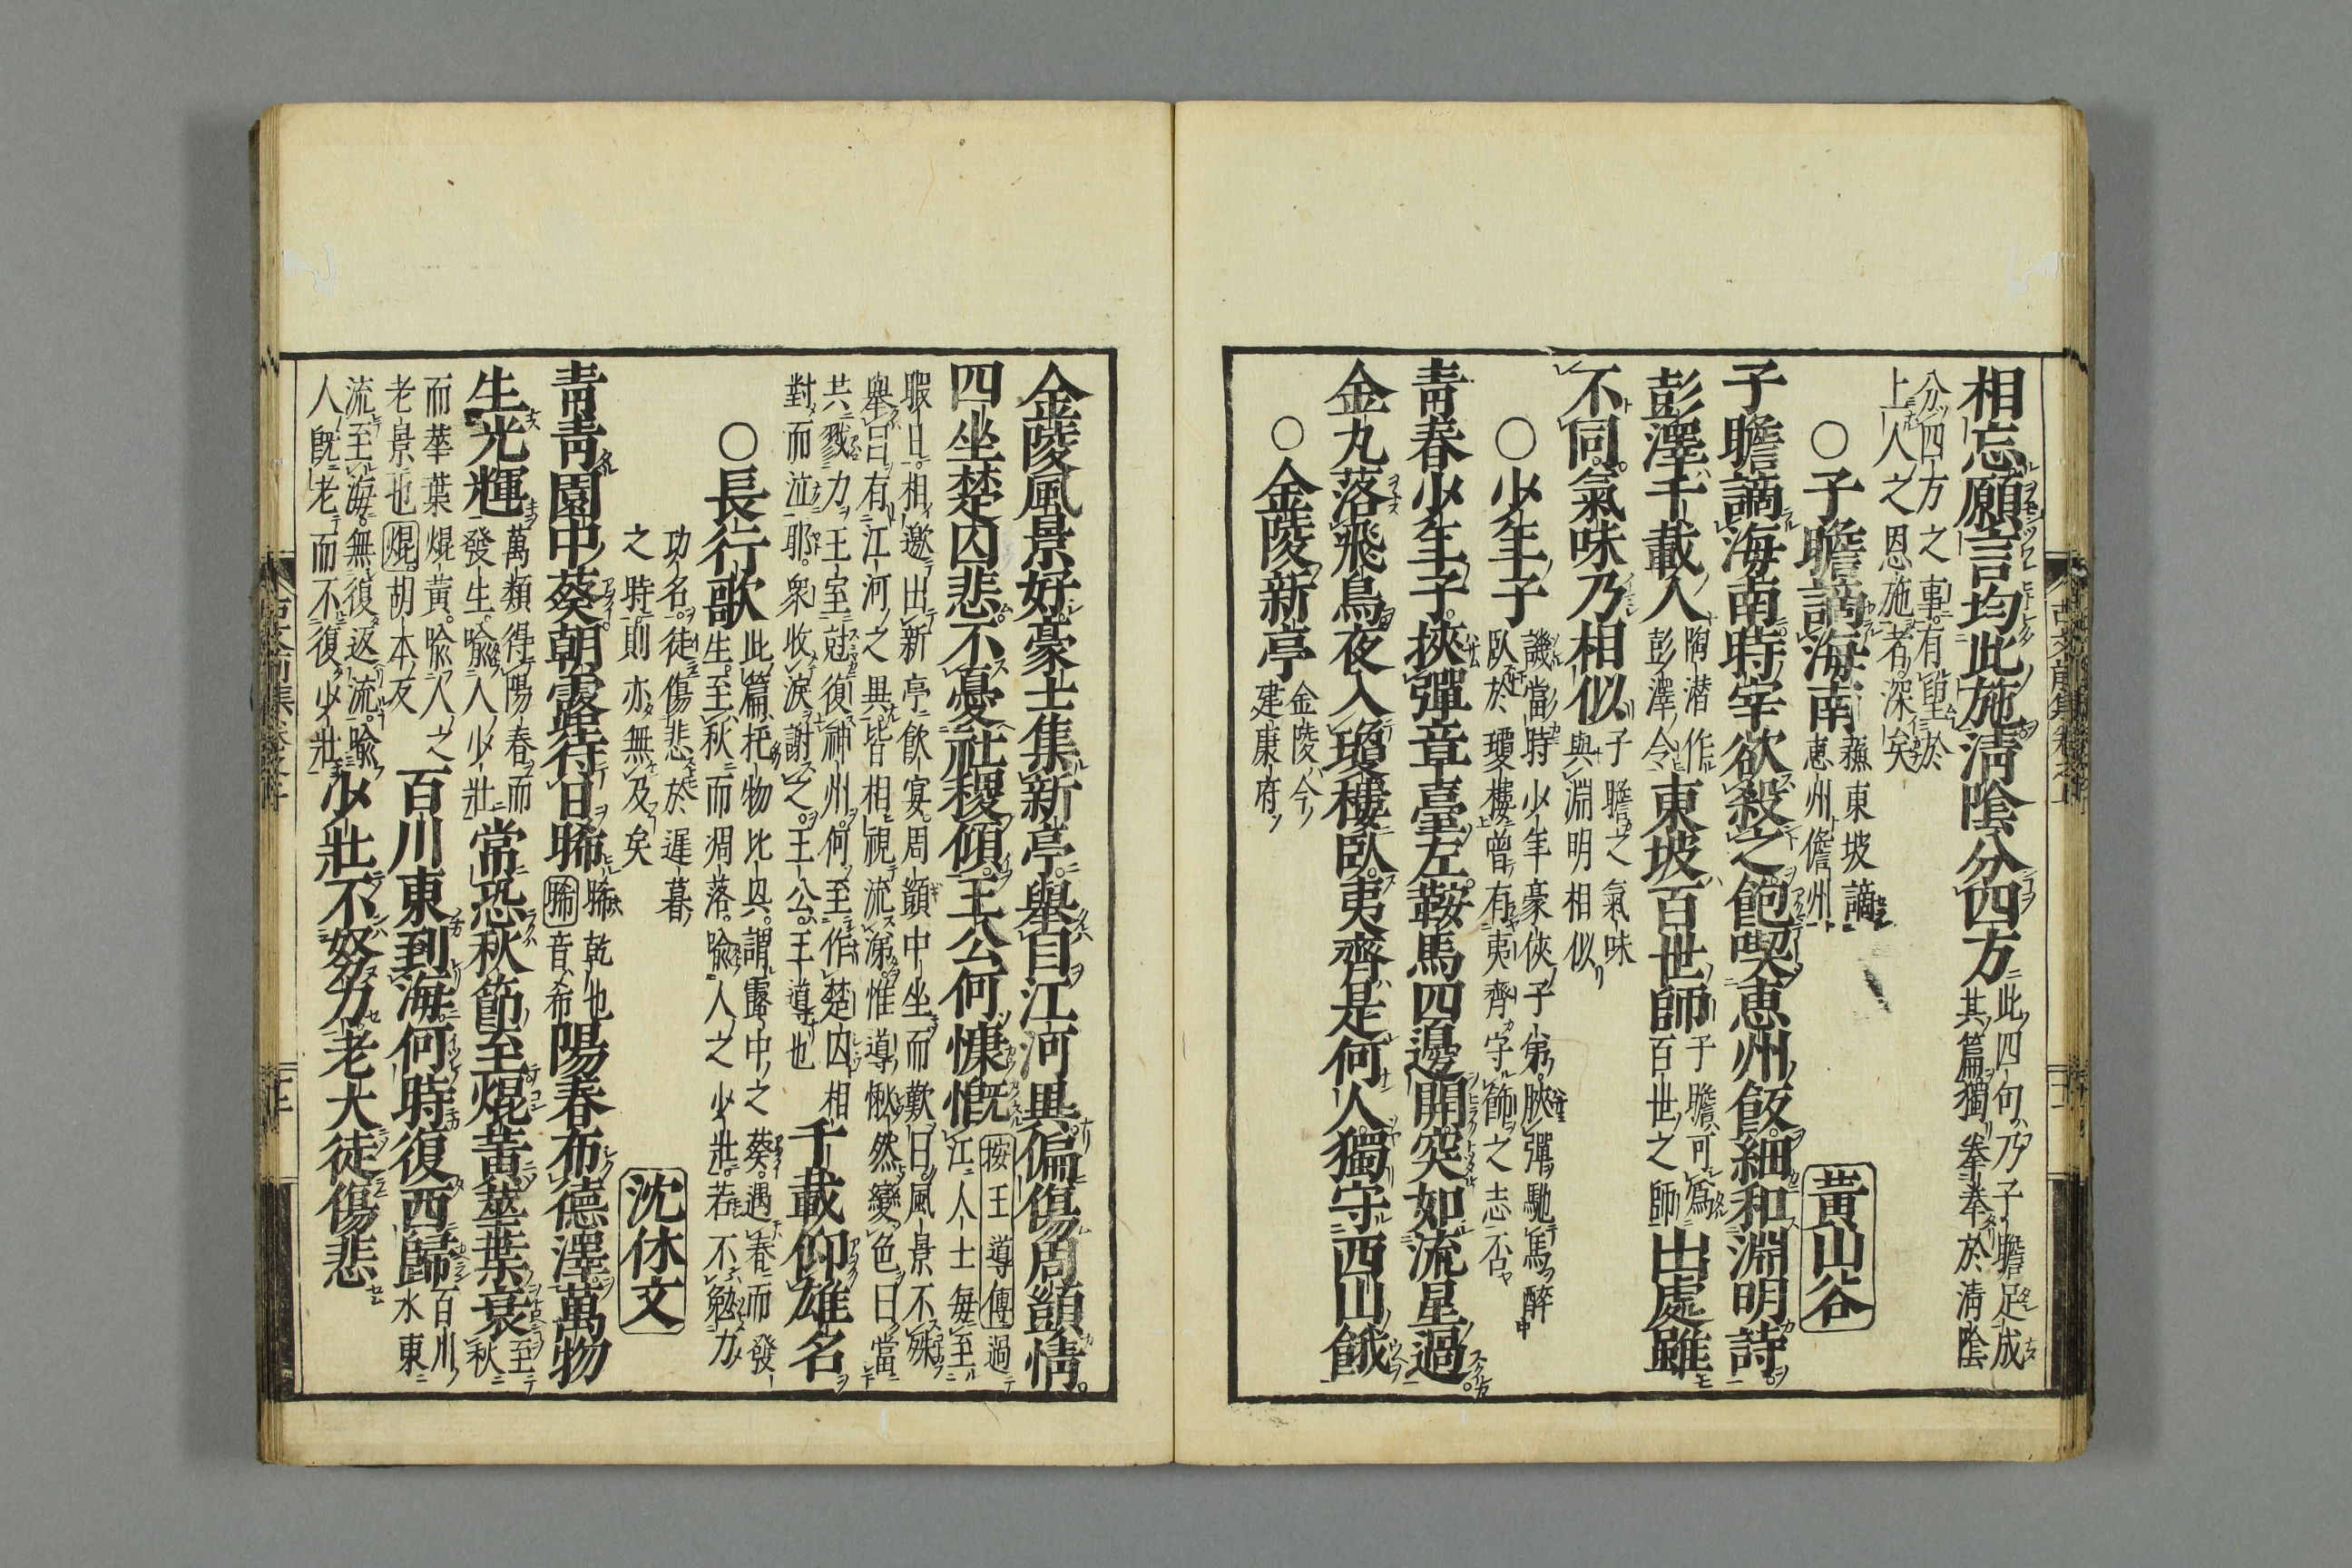 相忘願言均此施清陰分四方 此四句乃子瞻足成
其篇獨拳拳於清陰
分四方之事有望於
上人之恩施者深矣
○子瞻謫海南 蘇東坡謫
惠州儋州 黃山谷
子瞻謫海南時宰欲殺之飽喫惠州飯細和淵明詩
彭澤千載人 陶潛作
彭澤令 東坡百世師 子瞻可爲
百世之師 出處雖
不同氣味乃相似 子瞻之氣味
與淵明相似
○少年子 譏當時少年豪俠子弟挾彈馳馬醉
臥於瓊樓曾有夷齊守餓之志否
青春少年子挾彈章臺左鞍馬四邊開突如流星過
金丸落飛鳥夜入瓊樓臥夷齊是何人獨守西山餓
○金陵新亭 金陵今
建康府
古文前集卷之上
金陵風景好豪士集新亭舉目江河異偏傷周顗情
四坐楚囚悲不憂社稷傾王公何慷慨 按王導傳過
江人士每至
暇日相邀出新亭飲宴周顗中坐而歎曰風景不殊
舉目有江河之異皆相視流涕惟導愀然變色曰當
共戮力王室尅復神州何至作楚囚相
對而泣耶衆收淚謝之王公王導也 千載仰雄名
○長行歌 此篇托物比興謂園中之葵遇春而發
生至秋而凋落喩人之少壯若不勉力
功名徒傷悲於遲暮
之時則亦無及矣 沈休文
靑靑園中葵朝露待日晞 晞乾也
晞音希 陽春布德澤萬物
生光輝 萬類得陽春而
發生喩人少壯 常恐秋節至焜黃華葉衰 至秋
而華葉焜黃喩人之
老景也焜胡本反 百川東到海何時復西歸 百川
水東
流至海無復返流喩
人既老而不復少壯 少壯不努力老大徒傷悲